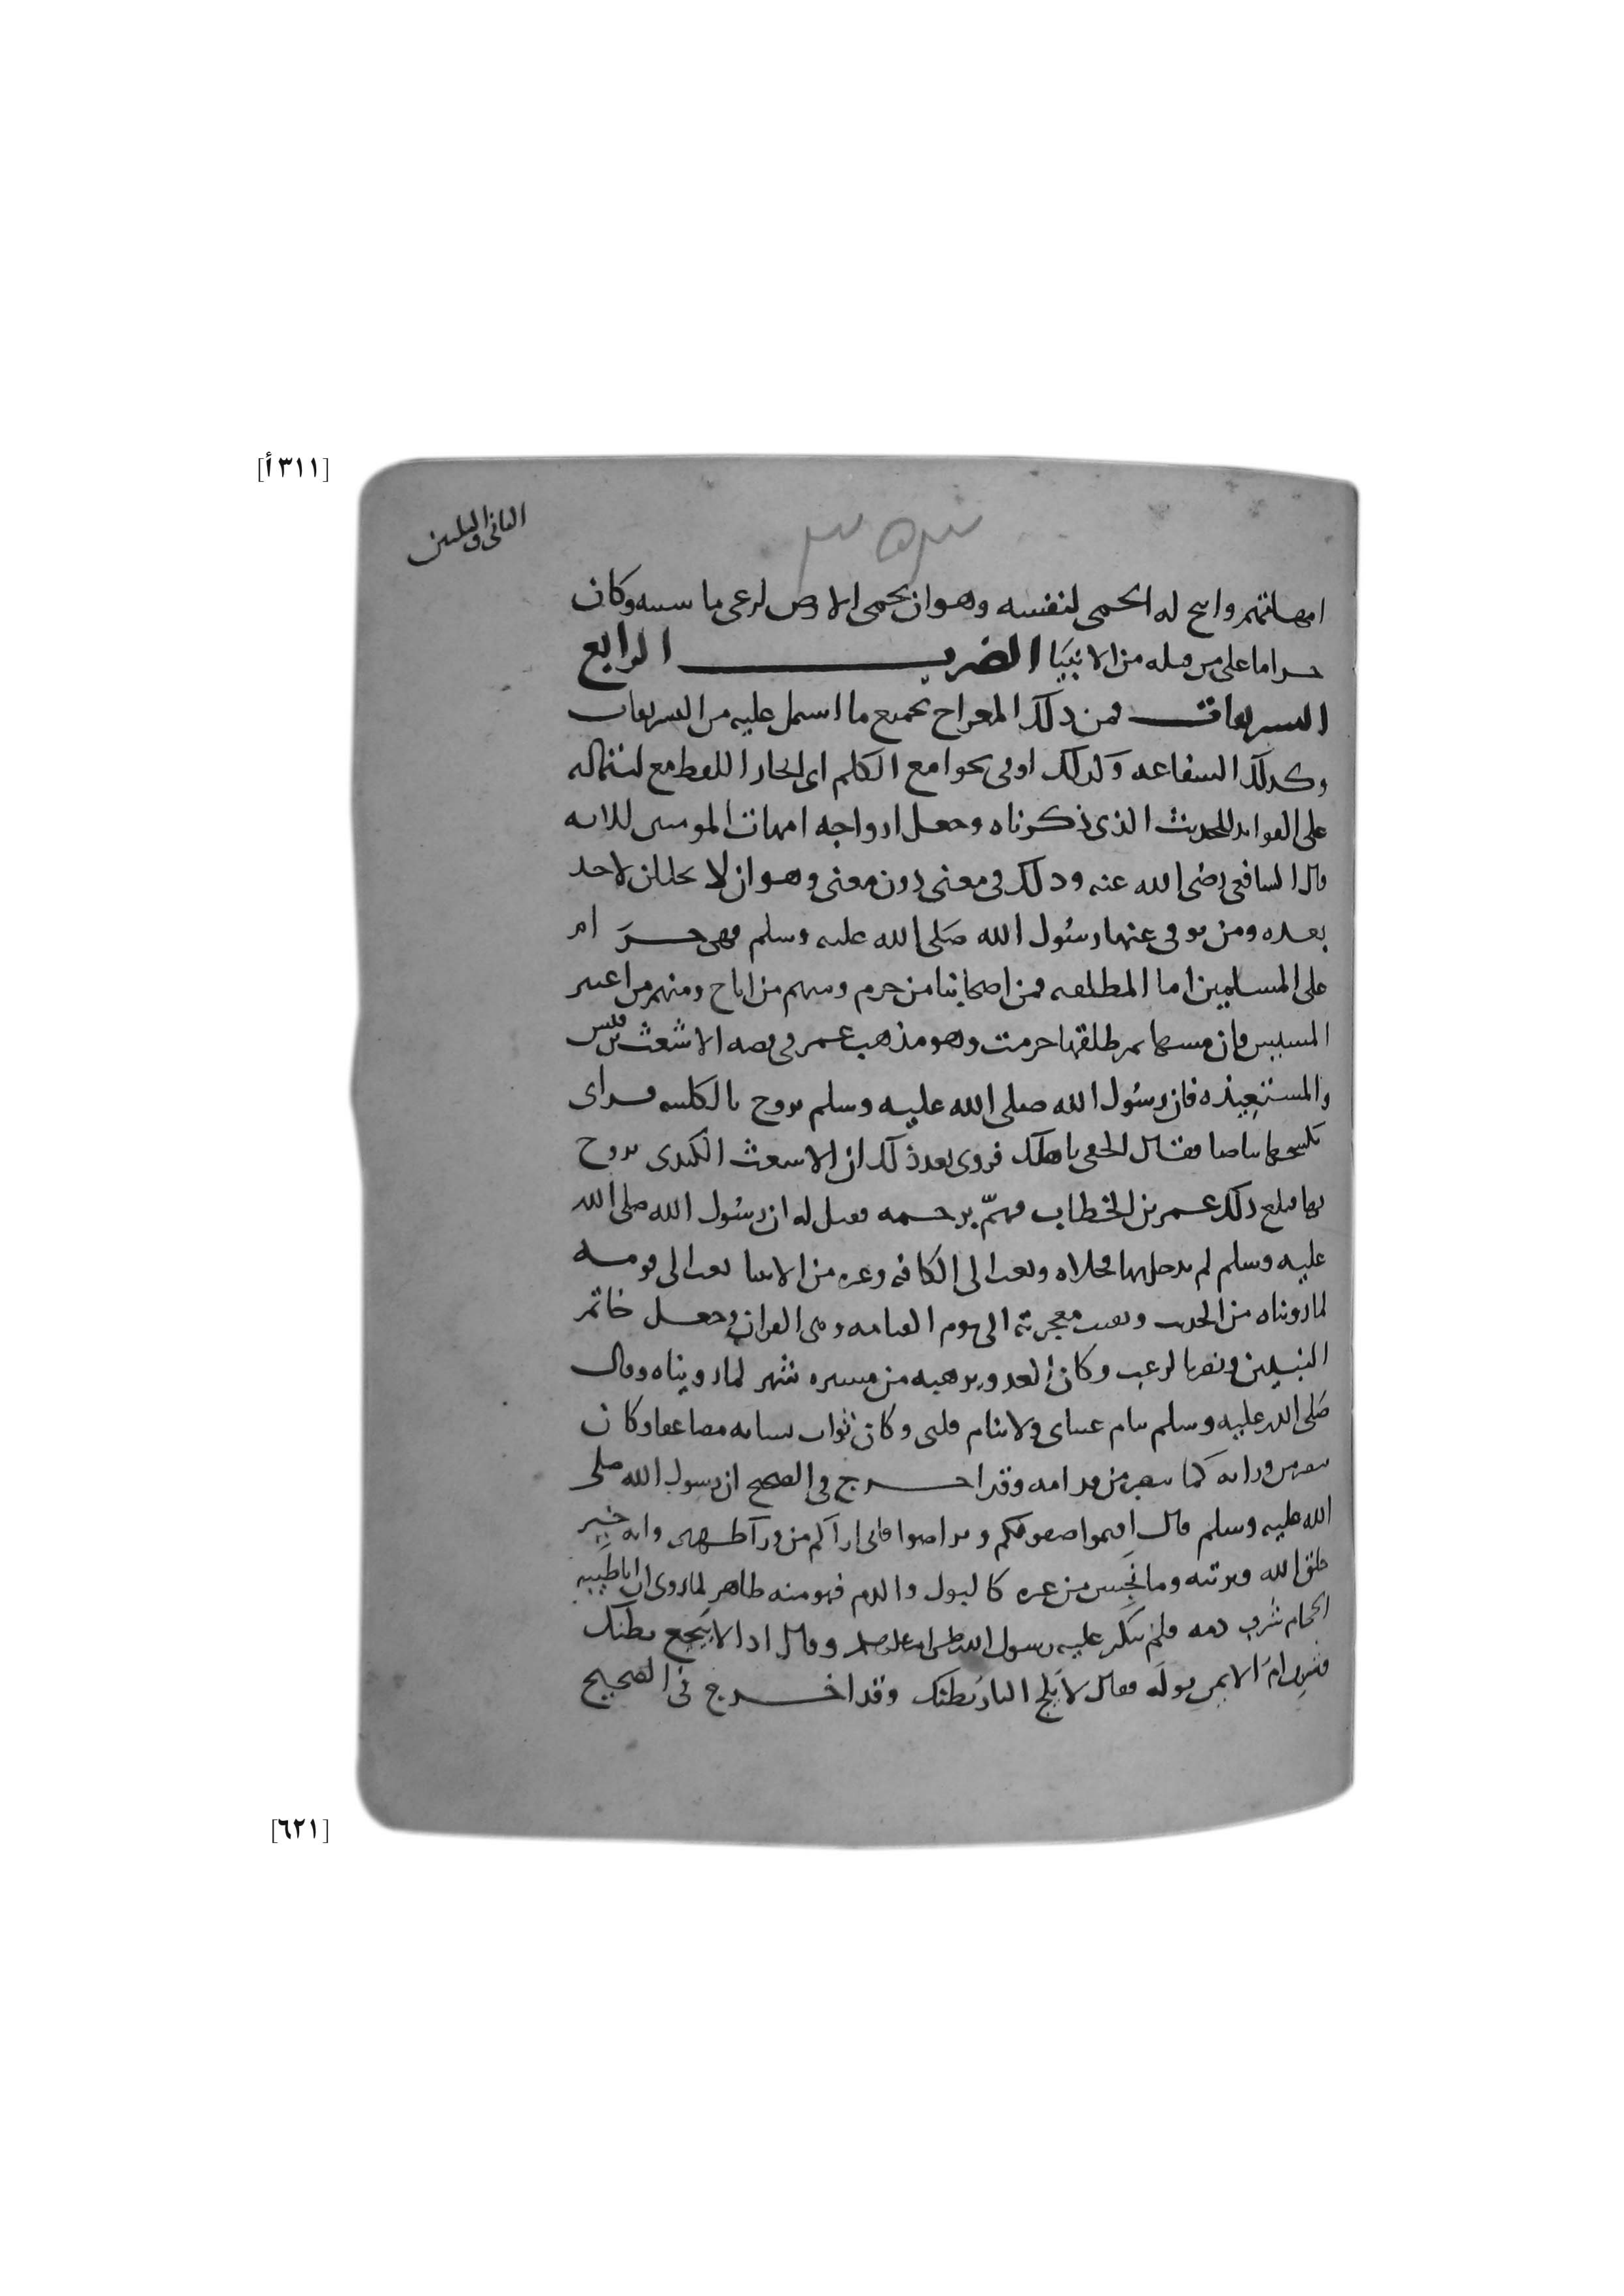 [٣١١أ]
الثاني والثلثين
٣٥٣
امهاتهم وابيح له الحمى لنفسه وهو ان يحمى الارض لرعى ماشيته وكان
حراما على من قبله من الانبيا الضرب الرابع
التشريفات فمن ذلك المعراج بجميع ما اشتمل عليه من التشريفات
وكذلك الشفاعه وكذلك اوتى بجوامع الكلم اى ايجاز اللفظ مع اشتماله
على الفوايد للحديث الذى ذكرناه وجعل ازواجه امهات المومنين للايه
قال الشافعى رضى الله عنه وذلك فى معنى دون معنى وهو ان لا يحللن لاحد
بعده ومن توفى عنها رسول الله صلى الله عليه وسلم فهى حرام
على المسلمين اما المطلقه فمن اصحابنا من حرم ومنهم من اباح ومنهم من اعتبر
المسيس فان مسها ثم طلقها حرمت وهو مذهب عمر فى قصه الاشعث بن قيس
والمستعيذه فان رسول الله صلى الله عليه وسلم تزوج بالكلبيه فراى
بكشحها بياضا فقال الحقى باهلك فروى بعد ذلك ان الاشعث الكندى تزوج
بها فبلغ ذلك عمر بن الخطاب فهمّ برجمه فقيل له ان رسول الله صلى الله
عليه وسلم لم يدخل بها فخلاه وبعث الى الكافه وغيره من الانبيا بعث الى قومه
لما رويناه من الحديث وبقيت معجزته الى يوم القيامه وهى القران وجعل خاتم
النبيين ونصر بالرعب وكان العدو يرهبه من مسيره شهر لما رويناه وقال
صلى الله عليه وسلم تنام عيناى ولا ينام قلبى وكان ثواب نسايه مضاعفا وكان
يبصر من ورايه كما يبصر من قدامه وقد اخرج فى الصحيح ان رسول الله صلى
الله عليه وسلم قال اقيموا صفوفكم وتراصوا فانى اراكم من ورآ ظهرى وانه خير
خلق الله وبرتيه وما نجس من غيره كالبول والدم فهو منه طاهر لما روى ان ابا طيبه
الحجام شرب دمه فلم ينكر عليه رسول الله صلى الله عليه وسلم وقال اذا لا ييجع بطنك
وشربت ام ايمن بوله فقال لا تلج النار بطنك وقد اخرج فى الصحيح
[٦٢١]